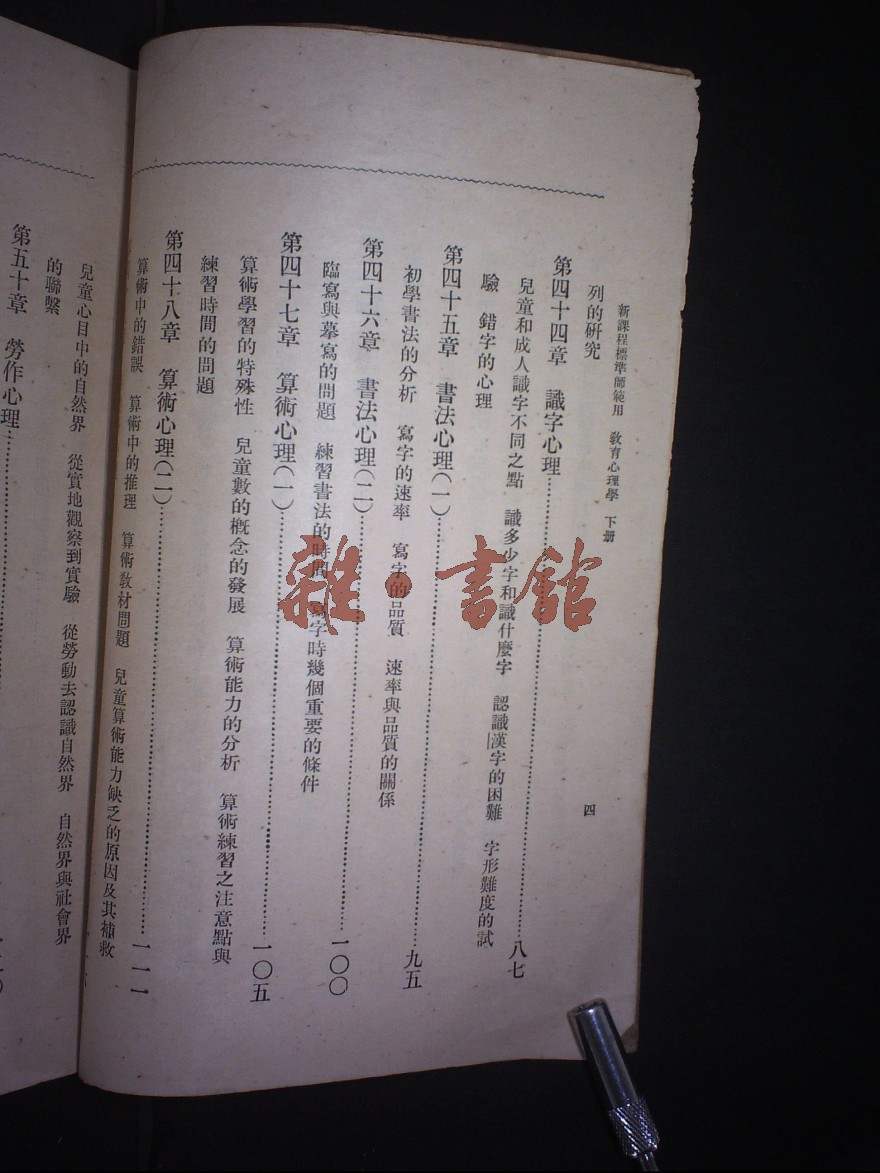 新課程標準師範用　教育心理學　下册
四
列的研究
第四十四章　識字心理……八七
兒童和成人識字不同之點　識多少字和識什麼字　認識漢字的困難　字形難度的試
驗　錯字的心理
第四十五章　書法心理(一)……九五
初學書法的分析　寫字的速率　寫字的品質　速率與品質的關係
第四十六章　書法心理(二)……一〇〇
臨寫與摹寫的問題　練習書法的時間　寫字時幾個重要的條件
第四十七章　算術心理(一)……一〇五
算術學習的特殊性　兒童數的概念的發展　算術能力的分析　算術練習之注意點與
練習時間的問題
第四十八章　算術心理(二)……一一一
算術中的錯誤　算術中的推理　算術教材問題　兒童算術能力缺乏的原因及其補救
兒童心目中的自然界　從實地觀察到實驗　從勞動去認識自然界　自然界與社會界
的聯繫
第五十章　勞作心理……
雜·書館